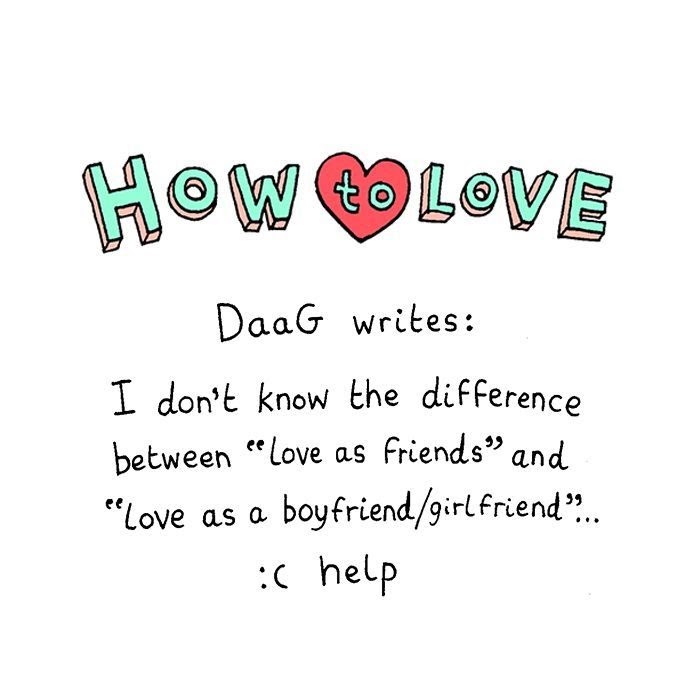 How to LOVE
DaaG writes:
I don't know the difference
between “love as friends” and
“love as a boyfriend/girlfriend”...
:c help